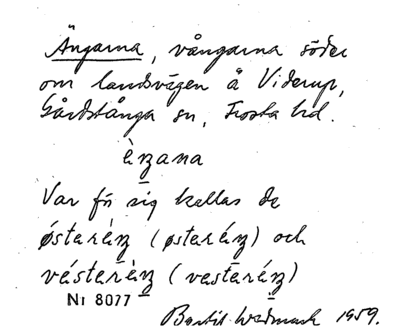 Ängarna, vångarna söder
om landsvägen å Viderup,
Gårdstånga sn, Frosta hd.
èŋana
Var för sig kallas de
østaréŋ (østaréŋ) och
véstarèŋ (vestaréŋ)
Nr 8077
Bertil Wedmark 1959.